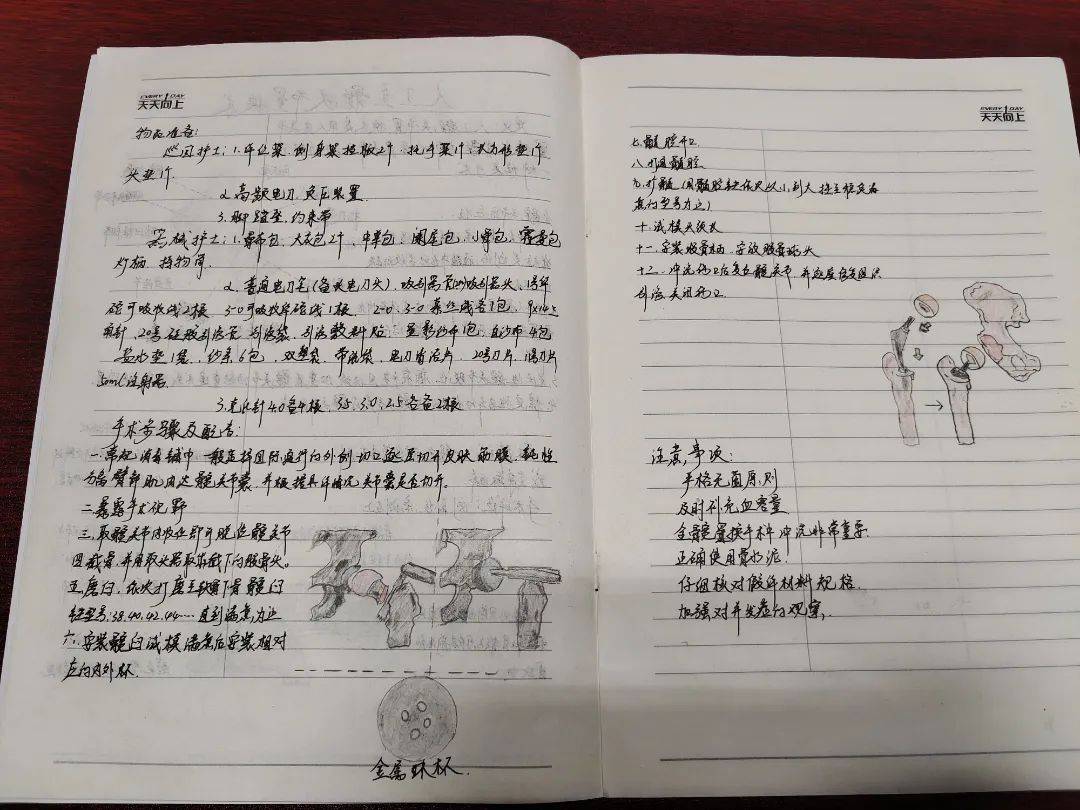 EVERY DAY
天天向上
物品准备:
巡回护士:1.平业架.侧身架挡版2个.托手架1个.长方形垫1个
头垫1个.
2.高频电刀.负压装置.
3.脚蹬垫.约束带
器械护士:1.骨布包.大衣包2个.中单包.阑尾包.小骨包.髋置包
灯柄.持物筒.
2.普通电刀笔(备长电刀头).吸引器管吸引器头.1号年
硅可吸收线2根 3-0可吸收年硅线1根 2-0.3-0慕丝线各1包.9x14△
角针.20号硅胶引流管.引流袋.引流敷料贴.显影纱布1包.白纱布4包
盐水垫1袋.纱条6包.双塑袋.带液袋.电刀清洁片.20号刀片.11号刀片
50ml注射器.
3.克氏针4.0备4根.3.5.3.0.2.5各备2根
手术步骤及配合:
一.常规消毒铺巾一般选择团队流行的外侧切口逐层切开皮肤.筋膜.钝性
分离臀部肌肉达髋关节囊.并根据具体情况关节囊是否切开.
二.暴露手术视野
三.取髋关节内收位即可脱位髋关节
四.截骨.并用取头器取出截下的股骨头.
五.磨臼.依次打磨至软骨下骨髋臼
锉型号.38.40.42.44……直到满意为止
六.安装髋臼试模满意后安装相对
应的内外杯.
金属球杯.
EVERY DAY
天天向上
七.髓腔开口
八.扩同髓腔
九.扩髓(用髓腔锉依次从小到大拴至维度合
适的型号为止)
十.试模头颈长
十一.安装股骨柄.安放股骨球头
十二.冲洗伤口后复位髋关节.并应度位逐留识
引流关闭伤口
注意事项:
严格无菌原则
及时补充血容量
全髋置换手术冲洗非常重要
正确使用骨水泥.
仔细核对假体材料规格
加强对并发症的观察.